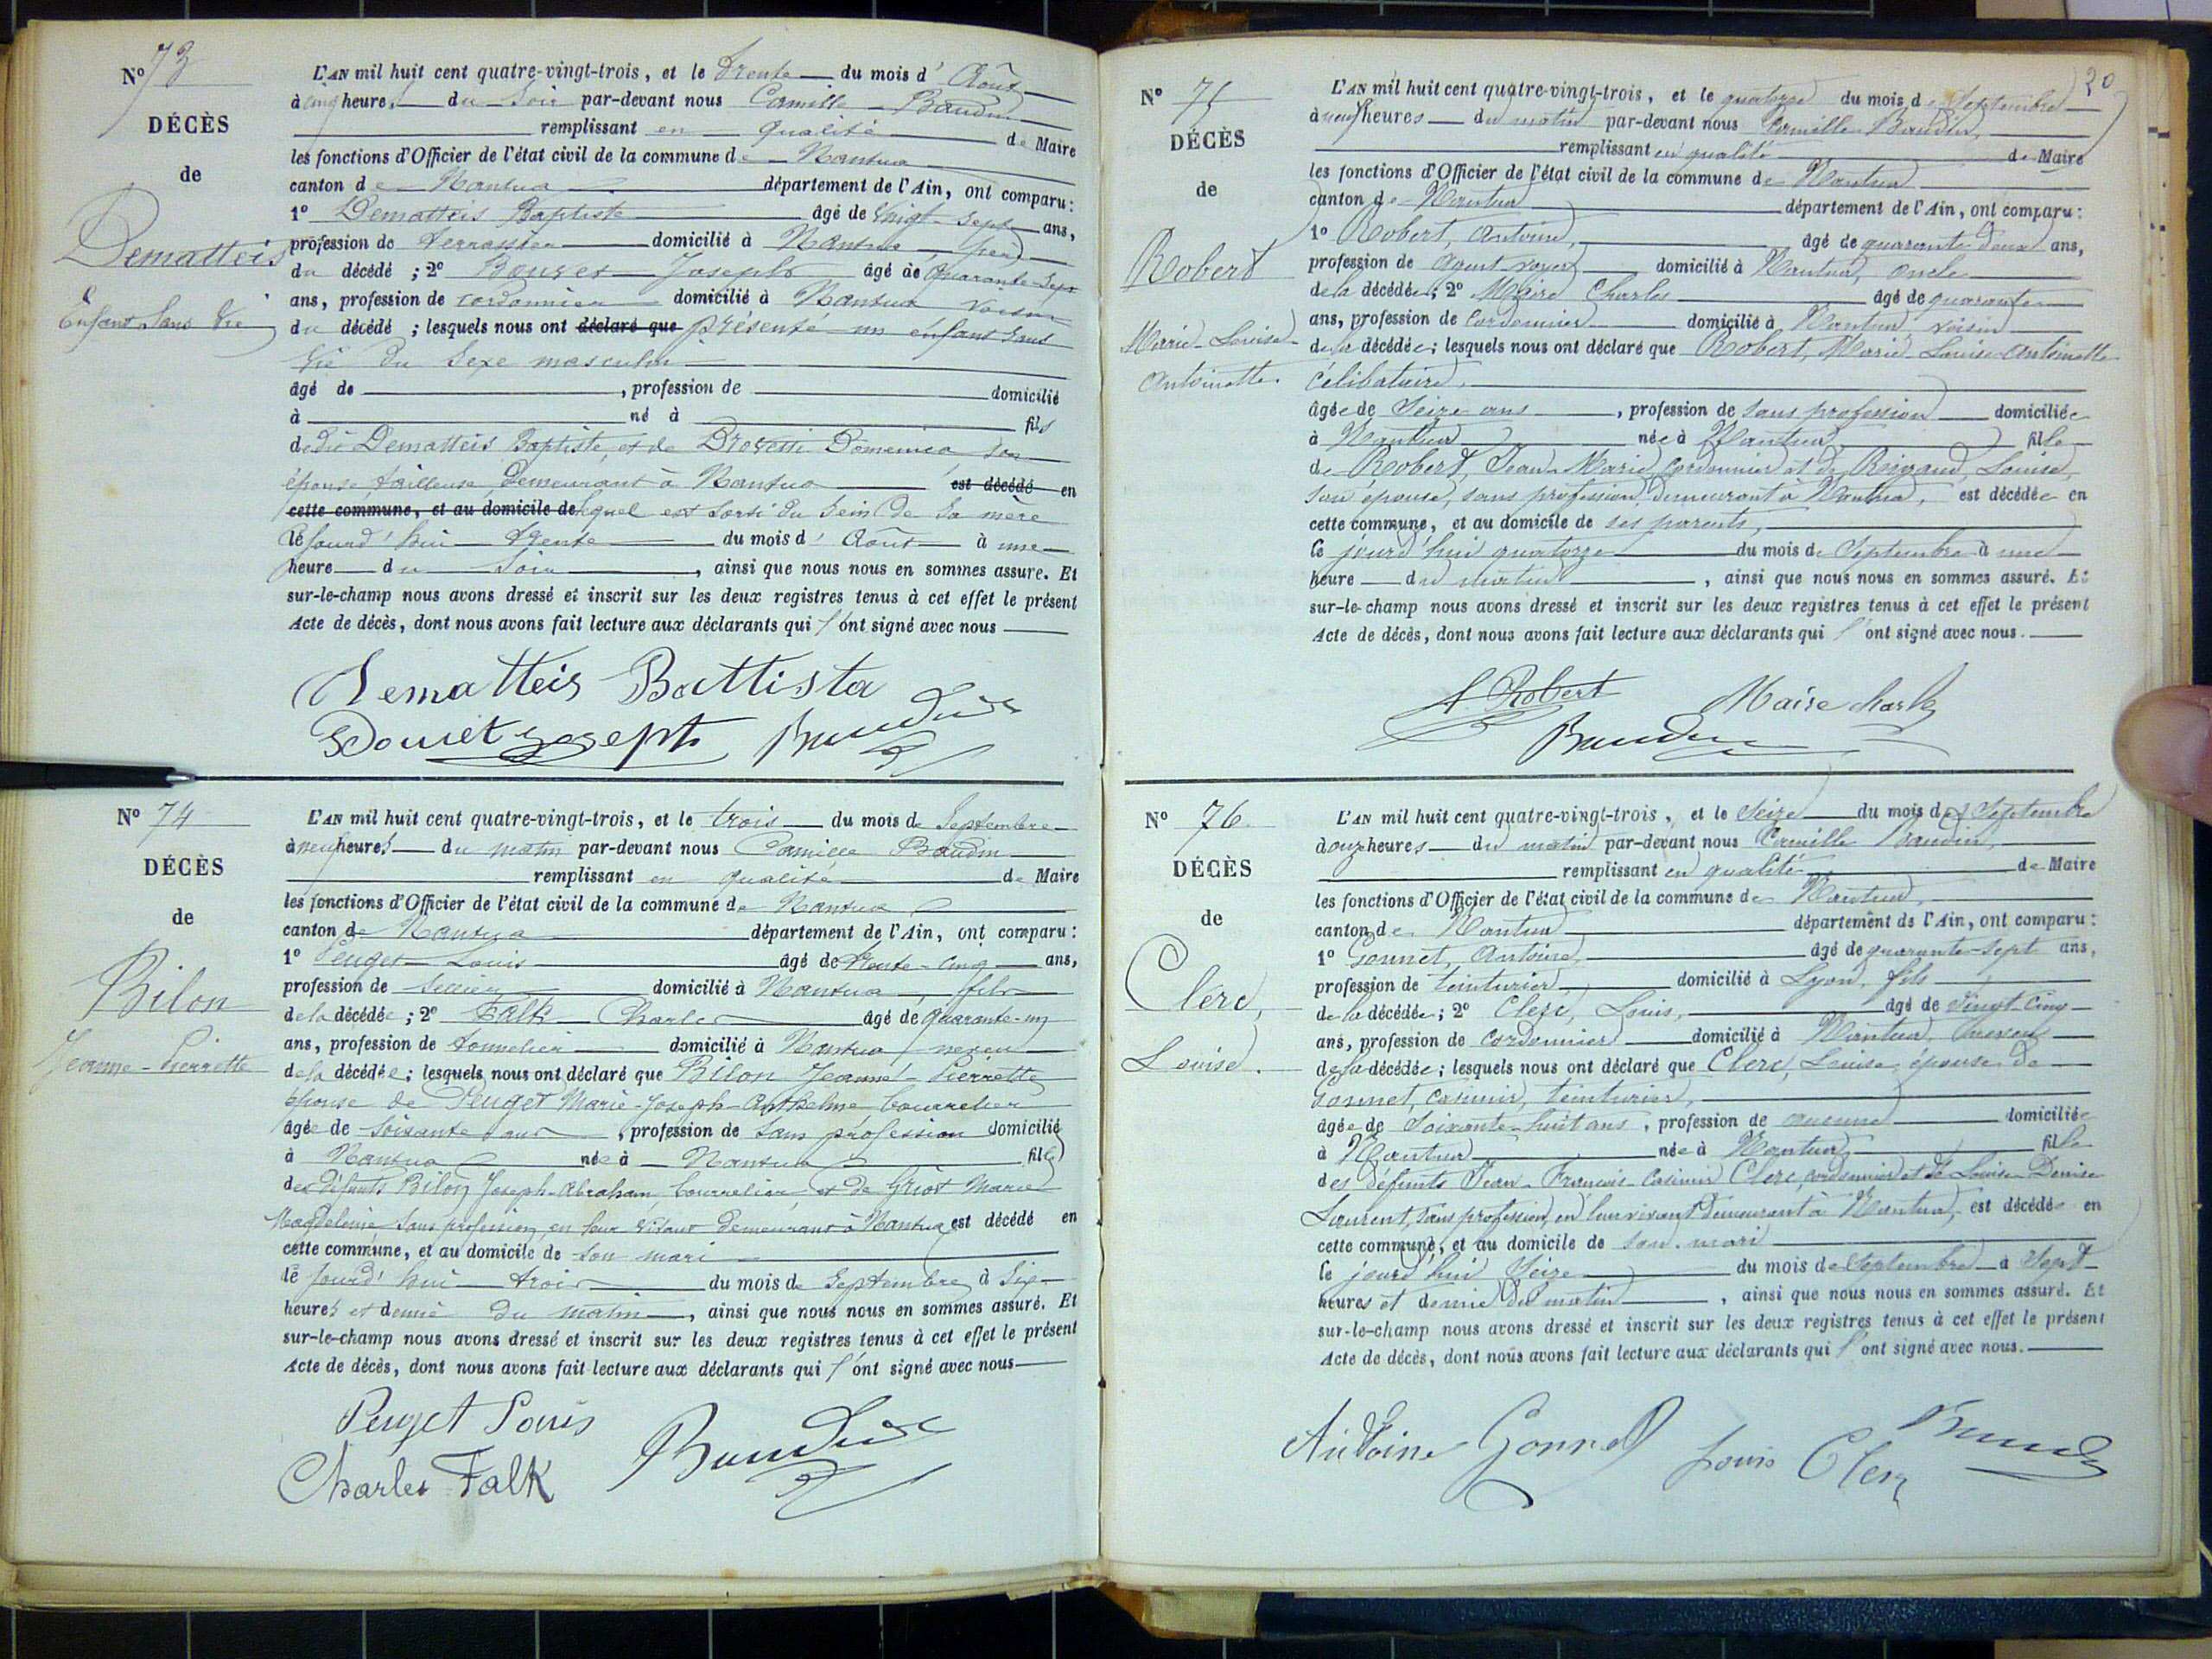 Nº 73
DÉCÈS
de
Dematteis
Enfant sans vie
L'AN mil huit cent quatre-vingt-trois, et le trente du mois d'Août
à cinq heures du soir par-devant nous Camille Baudin
remplissant en qualité de Maire
les fonctions d'Officier de l'état civil de la commune de Nantua
canton de Nantua département de l'Ain, ont comparu :
1º Dematteis Baptiste âgé de vingt-sept ans,
profession de terrassier domicilié à Nantua, père
du décédé ; 2º Joseph âgé de quarante-sept
ans, profession de cordonnier domicilié à Nantua voisin
du décédé ; lesquels nous ont déclaré que présenté un enfant sans
vie du sexe masculin
âgé de , profession de domicilié
à né à fils
de dit Dematteis Baptiste, et de Domenica son
épouse, tailleuse, demeurant à Nantua est décédé en
cette commune, et au domicile de lequel est sorti du sein de sa mère
le jourd'hui trente du mois d'Août à une
heure du soir , ainsi que nous nous en sommes assuré. Et
sur-le-champ nous avons dressé et inscrit sur les deux registres tenus à cet effet le présent
Acte de décès, dont nous avons fait lecture aux déclarants qui l'ont signé avec nous
Dematteis Battista
Douet Joseph Baudin
Nº 74
DÉCÈS
de
Bilon
Jeanne-Pierrette
L'AN mil huit cent quatre-vingt-trois, et le trois du mois de Septembre
à neuf heures du matin par-devant nous Camille Baudin
remplissant en qualité de Maire
les fonctions d'Officier de l'état civil de la commune de Nantua
canton de Nantua département de l'Ain, ont comparu :
1º Peuget Louis âgé de trente-cinq ans,
profession de sellier domicilié à Nantua, fils
de la décédée ; 2º Falk Charles âgé de quarante-un
ans, profession de tonnelier domicilié à Nantua neveu
de la décédée ; lesquels nous ont déclaré que Bilon Jeanne-Pierrette
épouse de Peuget Marie-Joseph-Anthelme bourrelier
âgée de soixante ans , profession de sans profession domicilié
à Nantua née à Nantua fille
des défunts Bilon Joseph-Abraham, bourrelier et de Griot Marie
Magdeleine sans profession, en leur vivant demeurant à Nantua est décédé en
cette commune, et au domicile de son mari
le jourd'hui trois du mois de Septembre à six
heures et demie du matin , ainsi que nous nous en sommes assuré. Et
sur-le-champ nous avons dressé et inscrit sur les deux registres tenus à cet effet le présent
Acte de décès, dont nous avons fait lecture aux déclarants qui l'ont signé avec nous
Peuget Louis
Charles Falk Baudin
20
Nº 75
DÉCÈS
de
Robert
Marie-Louise-
Antoinette.
L'AN mil huit cent quatre-vingt-trois, et le quatorze du mois de Septembre
à neuf heures du matin par-devant nous Camille Baudin,
remplissant en qualité de Maire
les fonctions d'Officier de l'état civil de la commune de Nantua
canton de Nantua département de l'Ain, ont comparu :
1º Robert, Antoine, âgé de quarante deux ans,
profession de agent voyer domicilié à Nantua, oncle
de la décédée ; 2º Maire Charles âgé de quarante
ans, profession de cordonnier domicilié à Nantua, voisin
de la décédée ; lesquels nous ont déclaré que Robert, Marie-Louise-Antoinette
célibataire,
âgée de seize ans , profession de sans profession domiciliée
à Nantua née à Nantua fille
de Robert, Jean-Marie, cordonnier et de Louise,
son épouse, sans profession, demeurant à Nantua, est décédée en
cette commune, et au domicile de ses parents,
le jourd'hui quatorze du mois de Septembre à une
heure du matin , ainsi que nous nous en sommes assuré. Et
sur-le-champ nous avons dressé et inscrit sur les deux registres tenus à cet effet le présent
Acte de décès, dont nous avons fait lecture aux déclarants qui l'ont signé avec nous.
A Robert Maire Charles
Baudin
Nº 76
DÉCÈS
de
Clerc,
Louise.
L'AN mil huit cent quatre-vingt-trois, et le seize du mois de Septembre
à onze heures du matin par-devant nous Camille Baudin,
remplissant en qualité de Maire
les fonctions d'Officier de l'état civil de la commune de Nantua
canton de Nantua département de l'Ain, ont comparu :
1º Gonnet, Antoine, âgé de quarante-sept ans,
profession de teinturier domicilié à Lyon, fils
de la décédée ; 2º Clerc, Louis, âgé de vingt-cinq
ans, profession de cordonnier domicilié à Nantua, neveu
de la décédée ; lesquels nous ont déclaré que Clerc, Louise, épouse de
Gonnet, Casimir, teinturier,
âgée de soixante-huit ans , profession de aucune domiciliée
à Nantua née à Nantua fille
des défunts Jean-François-Casimir Clerc, cordonnier et de Louise-Denise
Laurent, sans profession, en leur vivant demeurant à Nantua, est décédée en
cette commune, et au domicile de son mari
le jourd'hui seize du mois de Septembre à sept
heures et demie du matin , ainsi que nous nous en sommes assuré. Et
sur-le-champ nous avons dressé et inscrit sur les deux registres tenus à cet effet le présent
Acte de décès, dont nous avons fait lecture aux déclarants qui l'ont signé avec nous.
Antoine Gonnet Louis Clerc Baudin